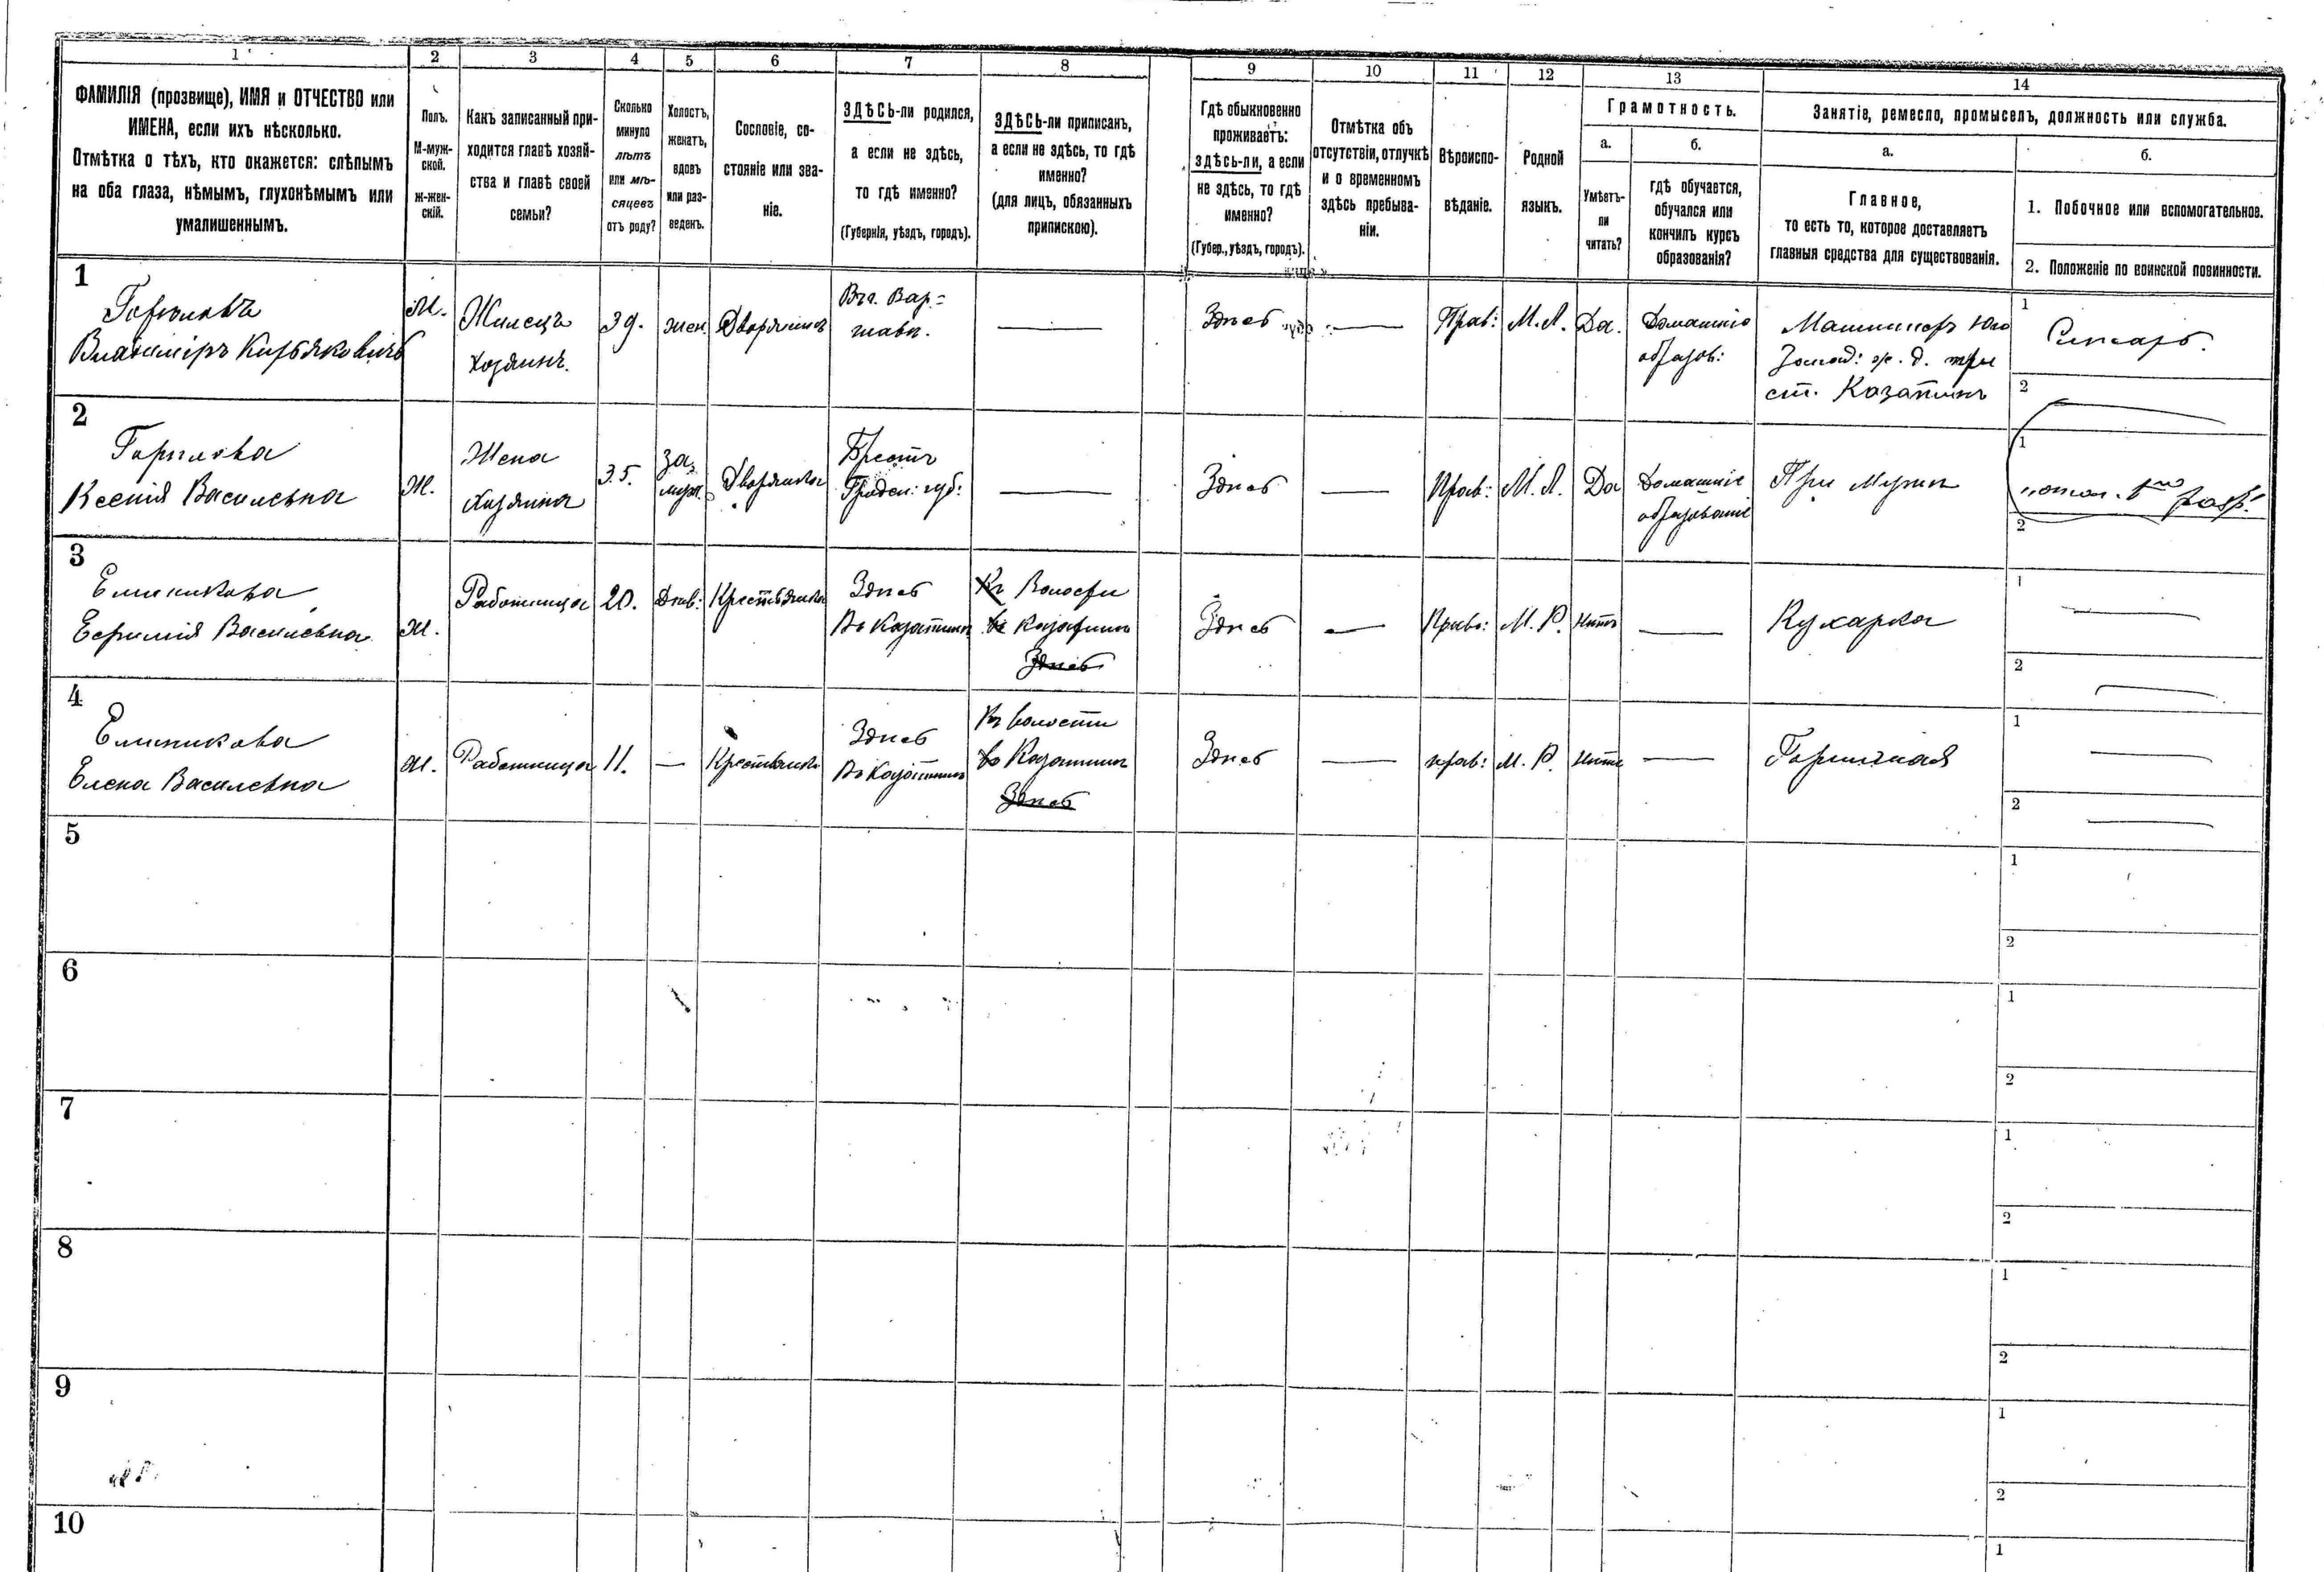 1
2
3
4
5
6
7
8
9
10
11
12
13
14
ФАМИЛІЯ (прозвище), ИМЯ и ОТЧЕСТВО или
ИМЕНА, если ихъ нѣсколько.
Отмѣтка о тѣхъ, кто окажется: слѣпымъ
на оба глаза, нѣмымъ, глухонѣмымъ или
умалишеннымъ.
Полъ.
М-муж-
ской.
Ж-жен-
скій.
Какъ записанный при-
ходится главѣ хозяй-
ства и главѣ своей
семьи?
Сколько
минуло
лѣтъ
или мѣ-
сяцевъ
отъ роду?
Холостъ,
женатъ,
вдовъ
или раз-
веденъ.
Сословіе, со-
стояніе или зва-
ніе.
ЗДѢСЬ-ли родился,
а если не здѣсь,
то гдѣ именно?
(Губернія, уѣздъ, городъ).
ЗДѢСЬ-ли приписанъ,
а если не здѣсь, то гдѣ
именно?
(для лицъ, обязанныхъ
припискою).
Гдѣ обыкновенно
проживаетъ:
здѣсь-ли, а если
не здѣсь, то гдѣ
именно?
(Губер., уѣздъ, городъ).
Отмѣтка объ
отсутствіи, отлучкѣ
и о временномъ
здѣсь пребыва-
ніи.
Вѣроиспо-
вѣданіе.
Родной
языкъ.
Грамотность.
а.
Умѣетъ-
ли
читать?
б.
гдѣ обучается,
обучался или
кончилъ курсъ
образованія?
Занятіе, ремесло, промыселъ, должность или служба.
а.
Главное,
то есть то, которое доставляетъ
главныя средства для существованія.
б.
1. Побочное или вспомогательное.
2. Положеніе по воинской повинности.
1
Владиміръ Кирьяковичъ
М.
Жилецъ
Хозяинъ.
39.
жен.
Дворянинъ
Вар=
шавѣ.
Здѣсь
Прав:
М. Л.
Да.
Домашнее
образов:
Машинистъ Юго
Запад: ж. д. при
ст. Казатинъ
1
Слесарь.
2
2
Ксенія Василевна
Ж.
Жена
Хозяина
35.
За
муж.
Дворянка
Брестъ
Гроден: губ:
Здѣсь
Прав:
М. Л.
Да
Домашніе
образованіе
При Мужѣ
1
2
3
Василевна
Ж.
Работница
20.
Дѣв:
Крестьянка
Здѣсь
Въ Казатинѣ
Къ Волости
въ Казатинѣ
Здѣсь
Здѣсь
Прав:
М. Р.
Нѣтъ
Кухарка
1
2
4
Елена Василевна
Ж.
Работница
11.
Крестьянка
Здѣсь
Въ Казатинѣ
Къ волости
въ Казатинѣ
Здѣсь
Здѣсь
прав:
М. Р.
Нѣтъ
Горничная
1
2
5
1
2
6
1
2
7
1
2
8
1
2
9
1
2
10
1